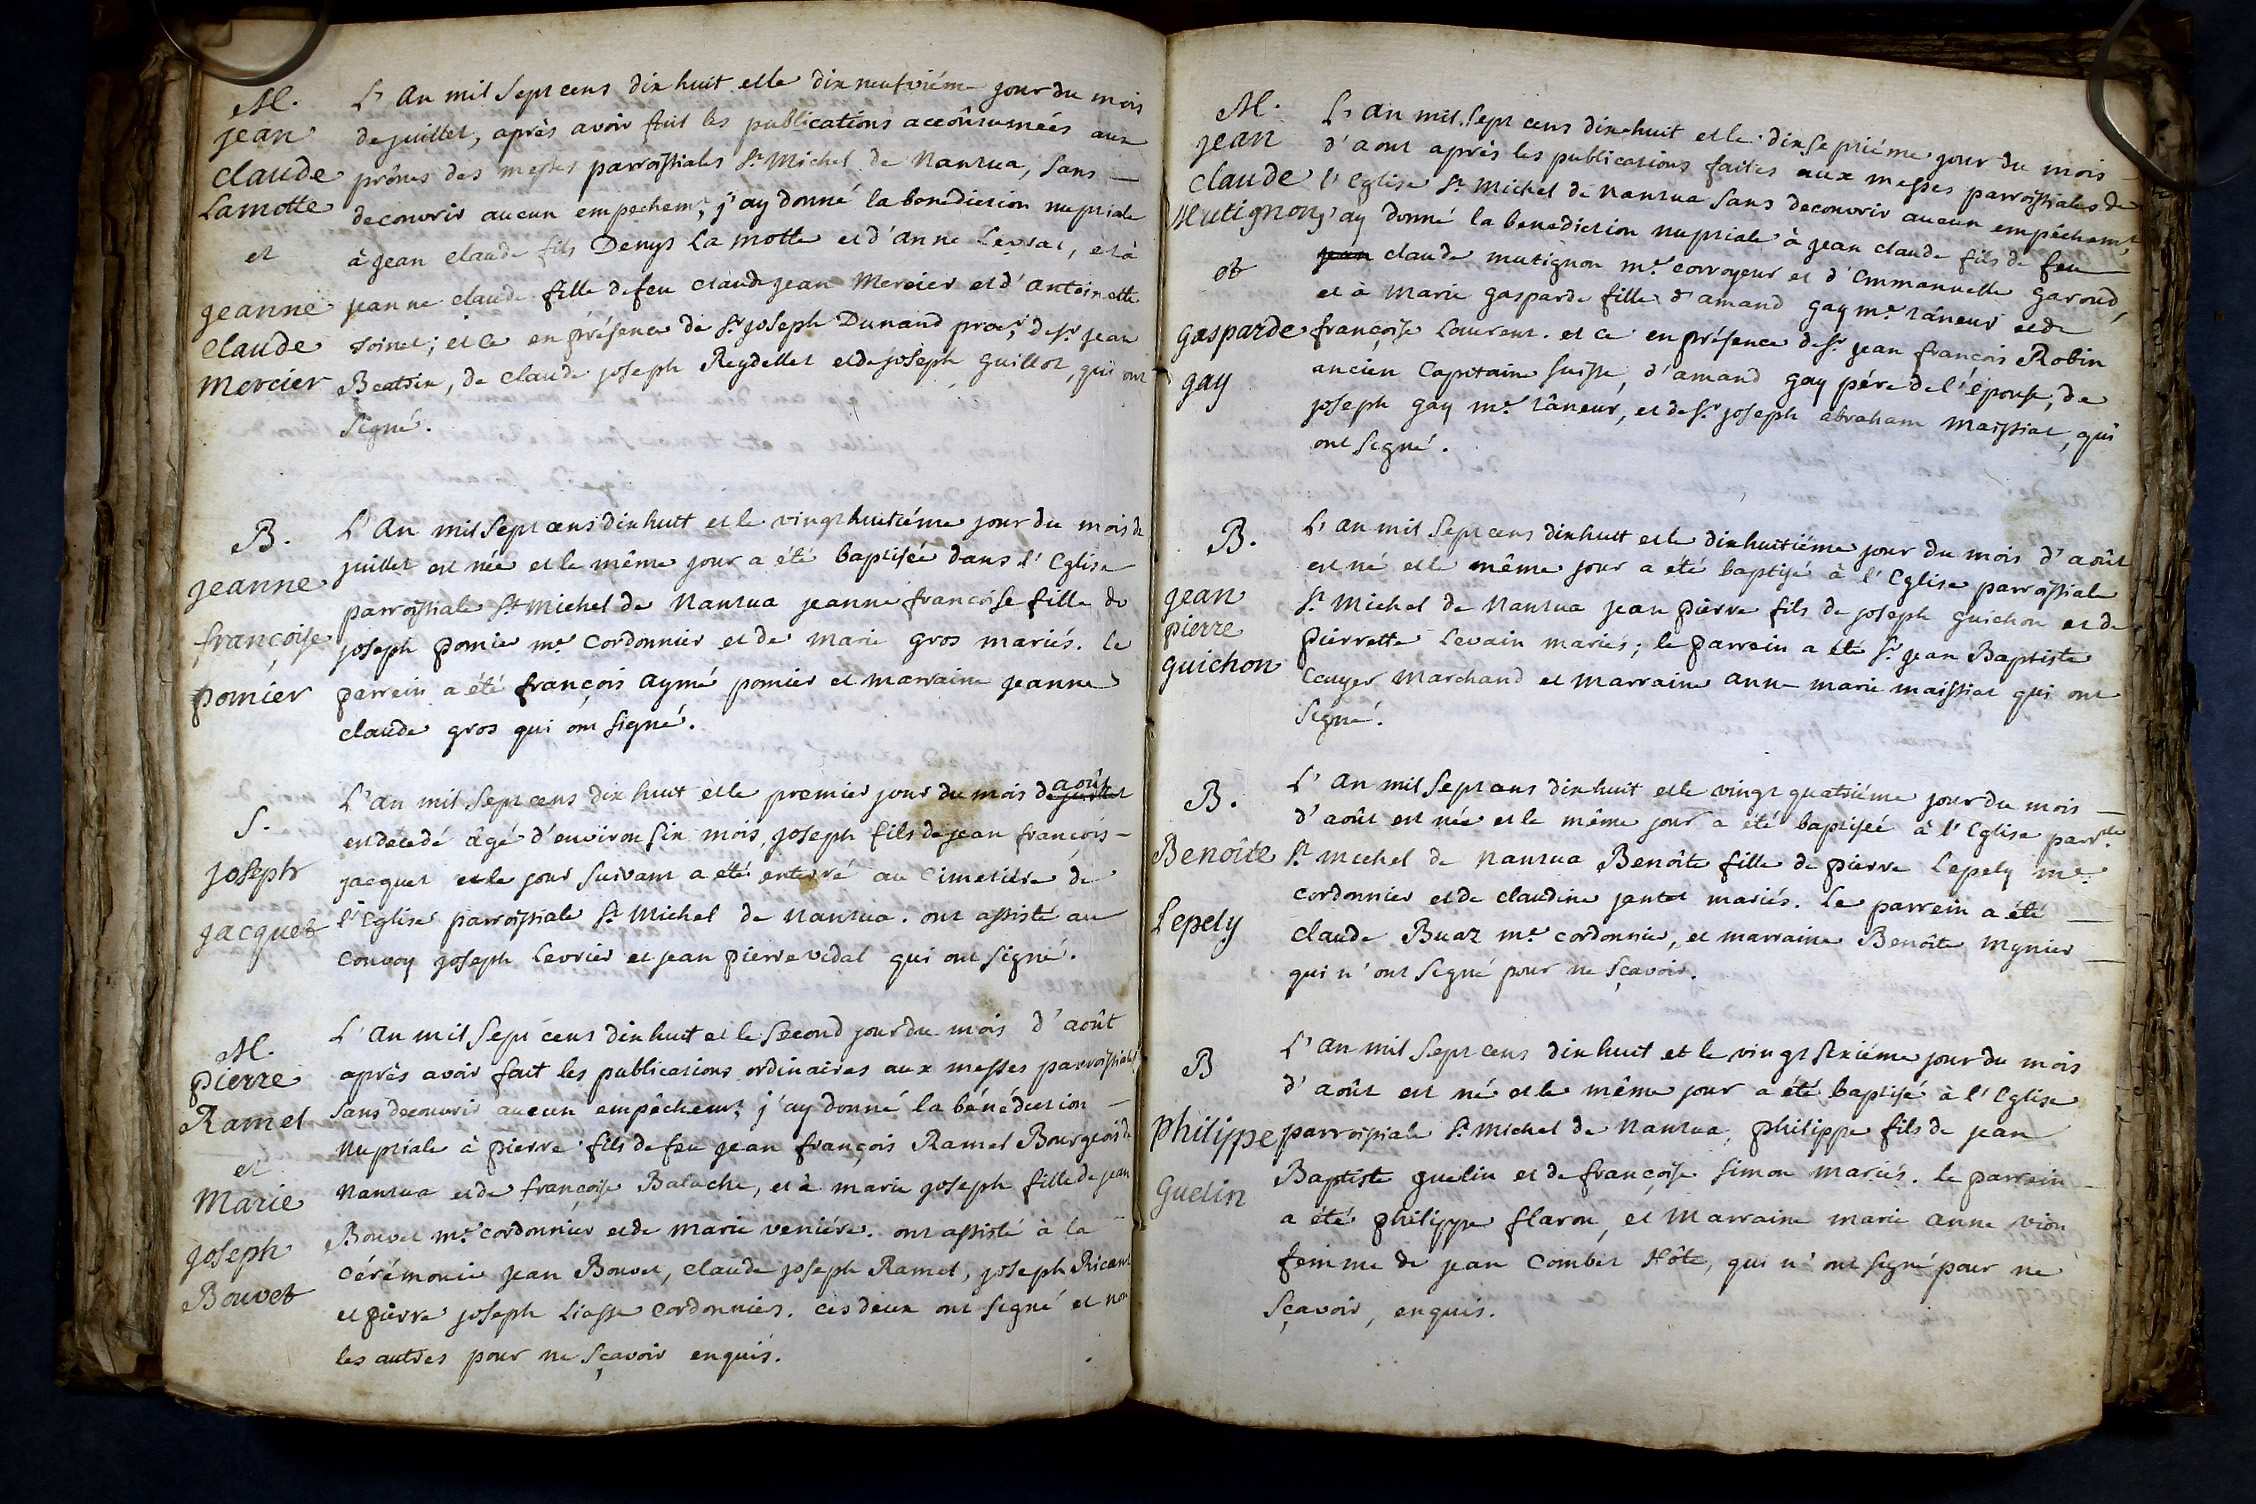 M.
jean
claude
Lamotte
et
jeanne
claude
mercier
L'an mil sept cens dix huit et le dix neufviéme jour du mois
de juillet, après avoir fait les publications accoûtumées aux
prônes des messes parroissiales St Michel de Nantua, sans —
decouvrir aucun empechemt, j'ay donné la benediction nuptiale
à jean claude fils Denys La motte et d'anne Levrat, et à
jeanne claude fille de feu claude jean Mercier et d'antoinette
soinet; et ce en présence de Sr joseph Dunand procr, de Sr jean
Beatrix, de claude joseph Reydellet et de joseph guillot, qui ont
signé.
B.
jeanne
françoise
pomier
L'An mil sept cens dix huit et le vingt huitiéme jour du mois de
juillet est née et le même jour a été baptisée dans l'Eglise
parroissiale St Michel de Nantua jeanne françoise fille de
joseph pomier me cordonnier et de marie gros mariés. le
parrein a été françois aymé pomier et marraine jeanne
claude gros qui ont signé.
S.
joseph
jacquet
L'an mil sept cens dix huit et le premier jour du mois de juillet août
est decedé âgé d'environ six mois, joseph fils de jean françois —
jacquet et le jour suivant a été enterré au cimetiére de
l'Eglise parroissiale St Michel de Nantua. ont assisté au
convoy joseph Levrier et jean pierre vidal qui ont signé.
M.
pierre
Ramel
et
Marie
joseph
Bouvet
L'an mil sept cens dix huit et le second jour du mois d'août
après avoir fait les publications ordinaires aux messes parroissiales
sans decouvrir aucun empêchemt, j'ay donné la bénédiction —
nuptiale à pierre fils de feu jean françois Ramel Bourgeois de
Nantua et de françoise Balache, et à marie joseph fille de jean
Bouvet me cordonnier et de marie veniére. ont assisté à la
cérémonie jean Bouvet, claude joseph Ramel, joseph
et pierre joseph Liasse cordonnier. ces deux ont signé et non
les autres pour ne sçavoir enquis.
M.
jean
claude
Mutignon
et
gasparde
gay
L'an mil sept cens dix huit et le dix septiéme jour du mois —
d'aout après les publications faites aux messes parroissiales de
l'Eglise St Michel de Nantua sans decouvrir aucun empêchemt,
j'ay donné la benediction nuptiale à jean claude fils de feu
jean claude mutignon me corroyeur et d'Emmanuelle garoud,
et à marie gasparde fille d'amand gay me tâneur et de
françoise Laurent. et ce en présence de Sr jean françois Robin
ancien Capitaine suisse, d'amand gay pére de l'épouse, de
joseph gay me tâneur, et de Sr joseph abraham maissiat, qui
ont signé.
B.
jean
pierre
guichon
L'an mil sept cens dix huit et le dix huitiéme jour du mois d'août
est né et le même jour a été baptisé à l'Eglise parroissiale
St Michel de Nantua jean pierre fils de joseph guichon et de
pierrette Levain mariés; le parrein a été Sr jean Baptiste
Ecuyer marchand et marraine anne marie maissiat qui ont
signé.
B.
Benoîte
Lepely
L'an mil sept cens dix huit et le vingt quatriéme jour du mois —
d'août est née et le même jour a été baptisée à l'Eglise parrlle
St michel de nantua Benoîte fille de pierre Lepely me
cordonnier et de claudine jantet mariés. Le parrein a été —
claude Buaz me cordonnier, et marraine Benoîte mynier —
qui n'ont signé pour ne sçavoir.
B
philippe
Guelin
L'an mil sept cens dix huit et le vingt sixiéme jour du mois
d'août est né et le même jour a été baptisé à l'Eglise
parroissiale St Michel de Nantua, philippe fils de jean
Baptiste guelin et de françoise simon mariés. le parrein —
a été philippe flaron, et marraine marie anne vion
femme de jean Combet Hôte, qui n'ont signé pour ne
sçavoir, enquis.